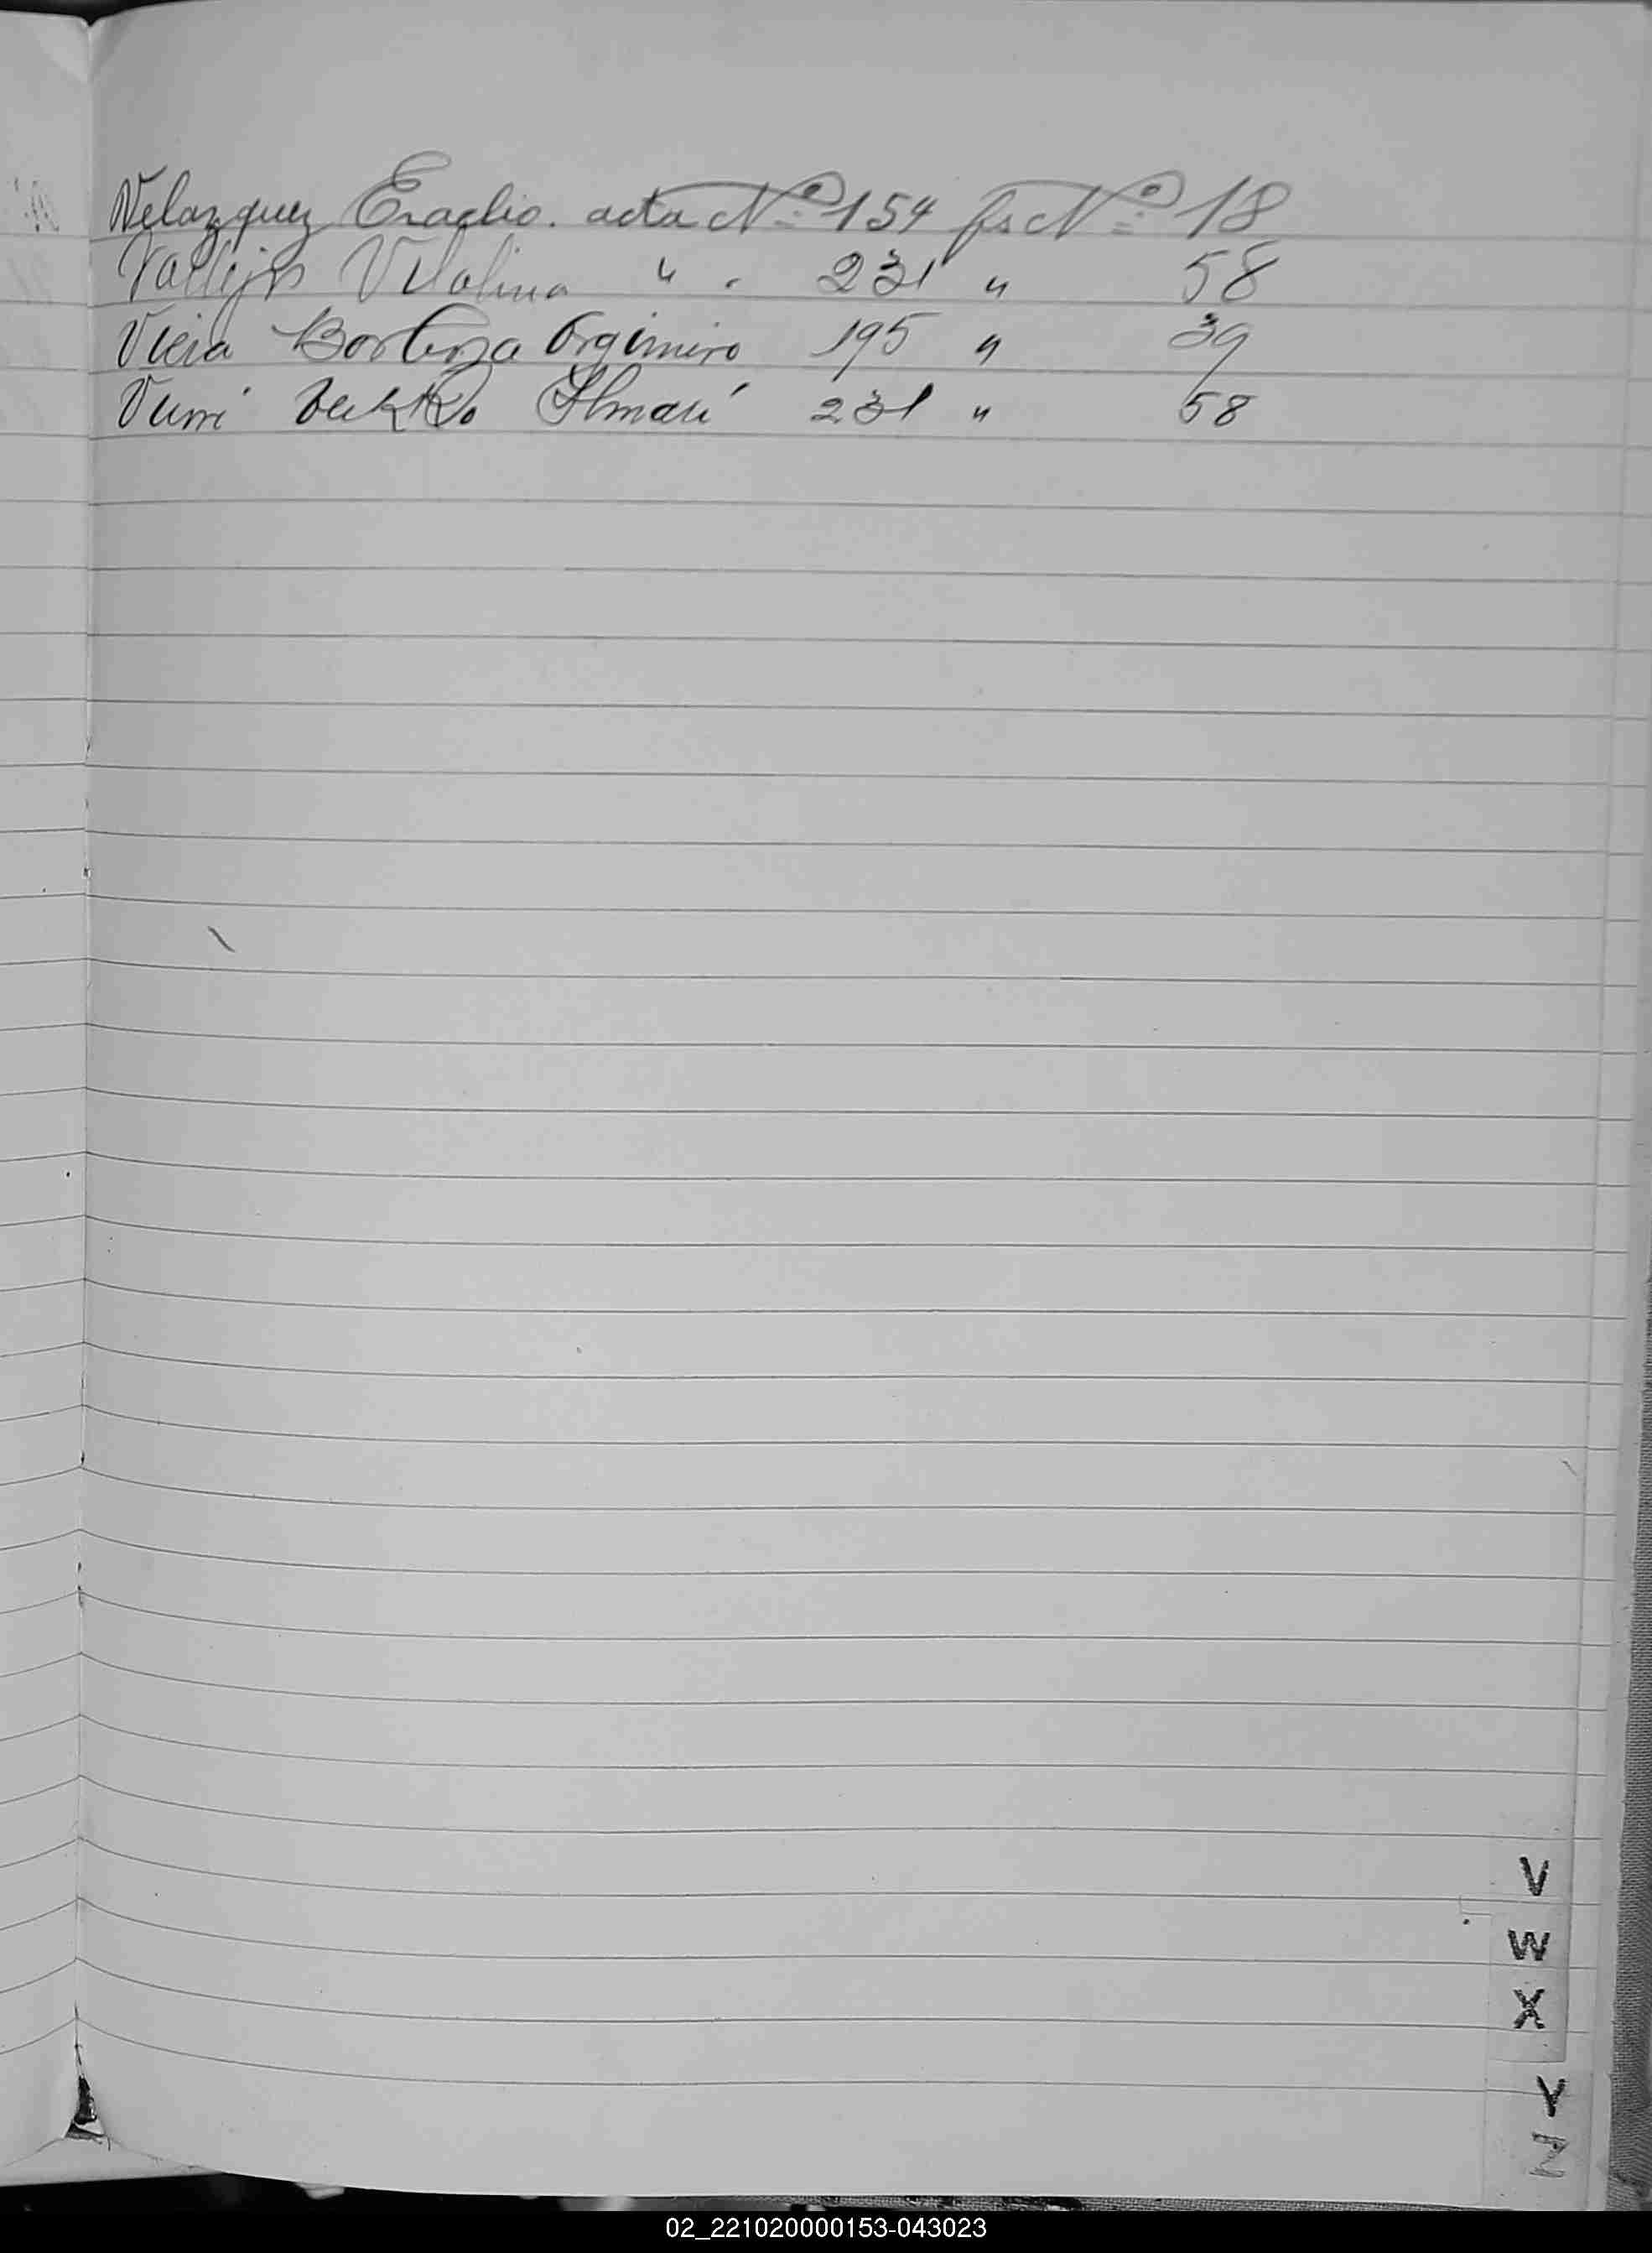 Velazquez Eraclio. acta Nº 154 fs Nº 18
Vallejos Vitolina " " 231 " 58
Vieia Argimiro 195 " 39
Ilmari 231 " 58
V
W
X
Y
Z
02_221020000153-043023